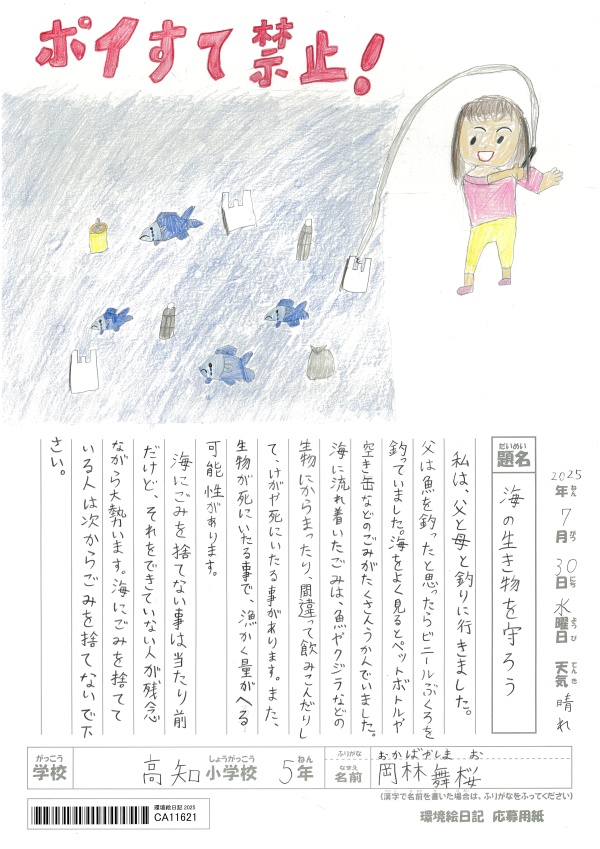 ポイすて禁止！
2025年 7月 30日 水曜日 天気 晴れ
ねん がつ にち ようび てんき
だいめい
題名
海の生き物を守ろう
私は、父と母と釣りに行きました。
父は魚を釣ったと思ったらビニールぶくろを
釣っていました。海をよく見るとペットボトルや
空き缶などのごみがたくさんうかんでいました。
海に流れ着いたごみは、魚やクジラなどの
生物にからまったり、間違って飲みこんだりし
て、けがや死にいたる事があります。また、
生物が死にいたる事で、漁かく量がへる
可能性があります。
海にごみを捨てない事は当たり前
だけど、それをできていない人が残念
ながら大勢います。海にごみを捨てて
いる人は次からごみを捨てないで下
さい。
がっこう しょうがっこう ねん ふりがな おかばやしま お
学校 高知 小学校 5年 なまえ 名前 岡林 舞桜
(漢字で名前を書いた場合は、ふりがなをふってください)
環境絵日記 2025
CA11621
環境絵日記 応募用紙